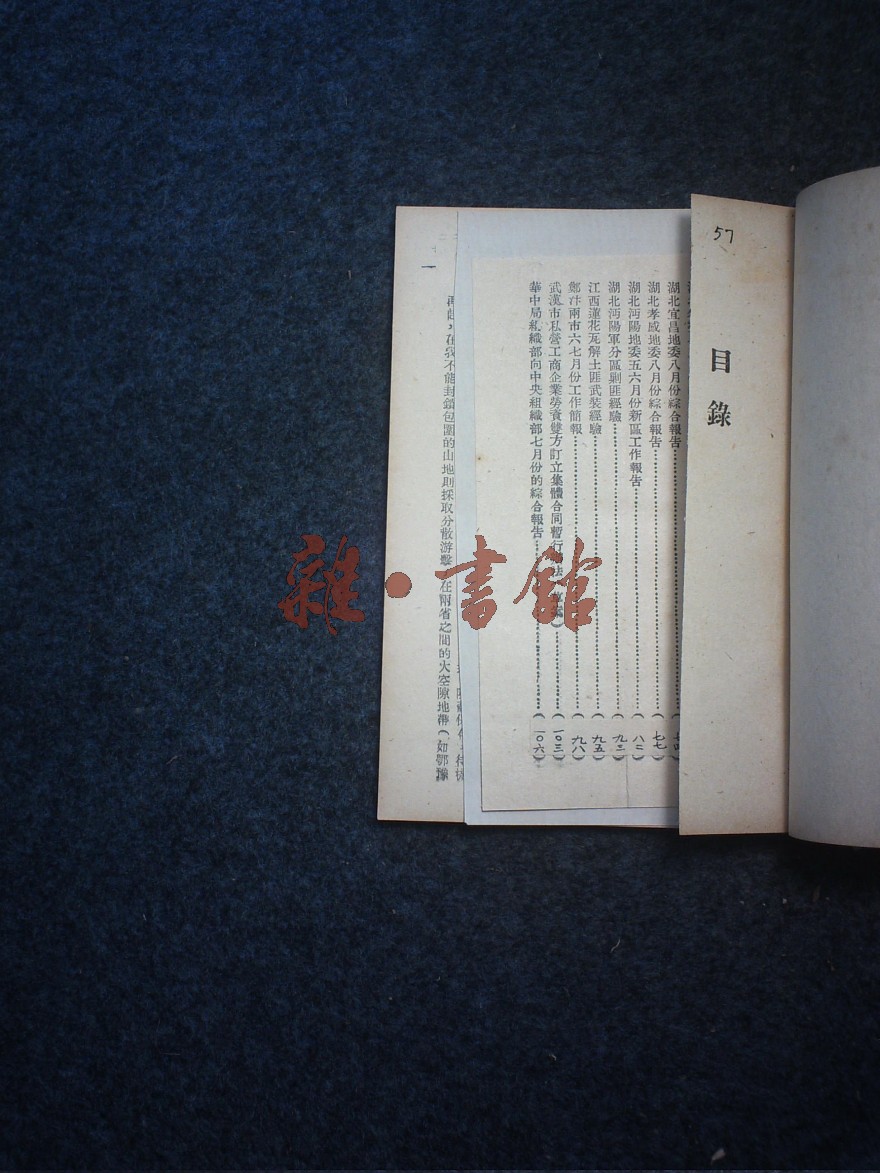 57
目錄
湖北宜昌地委八月份綜合報告
湖北孝感地委八月份綜合報告(七七)
湖北沔陽地委五六月份新區工作報告(八二)
湖北沔陽軍分區剿匪經驗(九二)
江西蓮花瓦解土匪武裝經驗(九五)
鄭汴兩市六七月份工作簡報(九八)
武漢市私營工商企業勞資雙方訂立集體合同暫行(一〇三)
華中局組織部向中央組織部七月份的綜合報告(一〇六)
一
在我不能封鎖包圍的山地則採取分散游擊,在兩省之間的大空隙地帶(如鄂豫
雜·書館